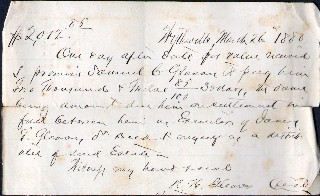 $2,012.85 Wytheville, March 26th 1880
One day after date for value received
I promise Samuel C. Gleaves to pay him
Two Thousand & Twelve 85/100 Dollars, the same
being amount due him on settlement in
full between him as Executor of James
T. Gleaves, as a distrib
utee of said Estate
Witness my hand & seal
Gleaves (Seal)